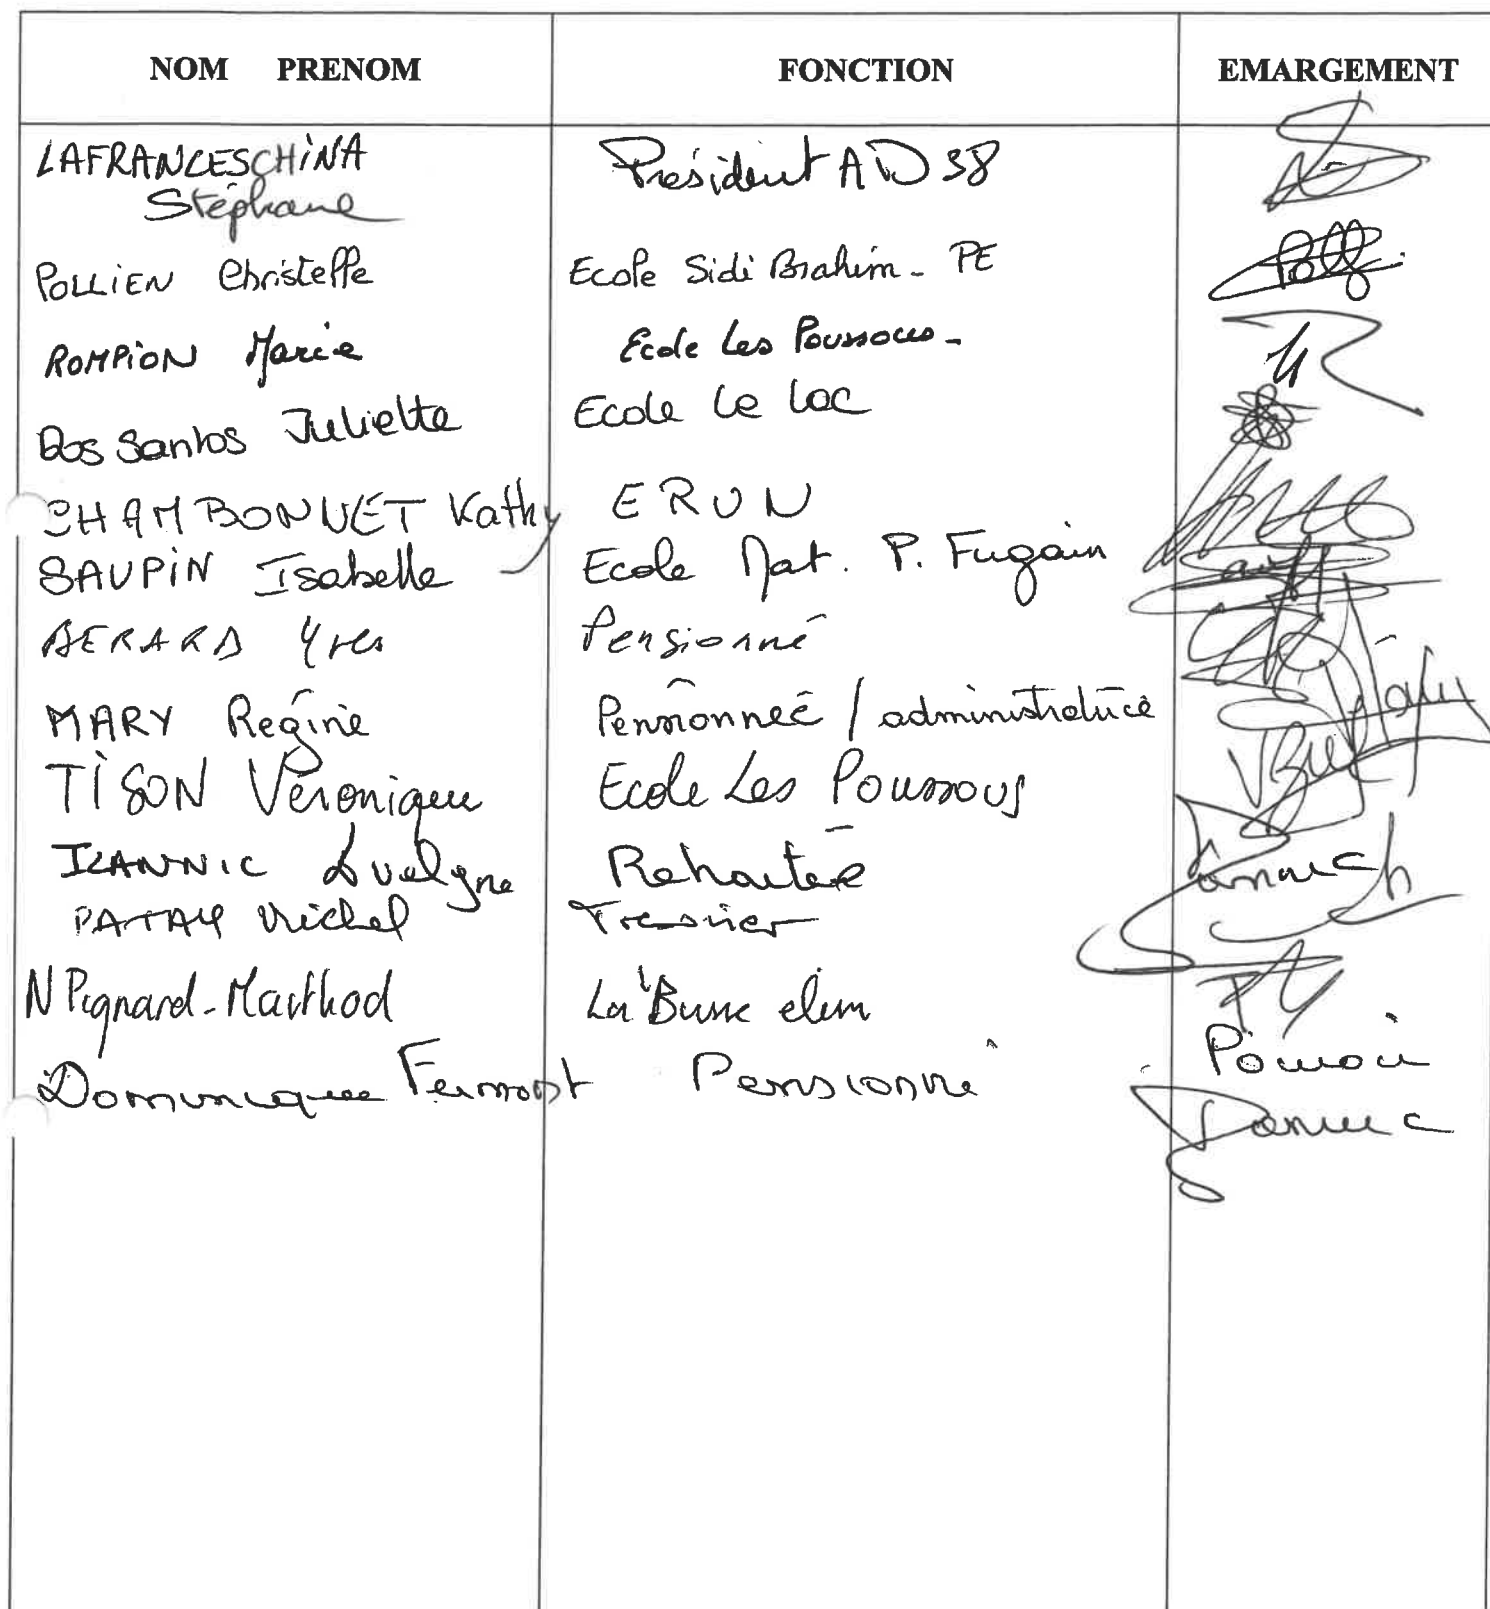 NOM PRENOM FONCTION EMARGEMENT
LAFRANCESCHINA Président AD 38
Stéphane
POLLIEN Christelle Ecole Sidi Brahim - PE
ROMPION Marie Ecole Les Poussous -
Dos Santos Juliette Ecole Le Lac
CHAMBONNET Kathy ERUN
SAUPIN Isabelle Ecole Mat. P. Fugain
BERARD Yves Pensionné
MARY Régine Pensionnée / administratrice
TISON Véronique Ecole Les Poussous
Retraitée
PATAY Michel Trésorier
N Pignard-Marthod La Busse elem Pouvoir
Dominique Pensionné